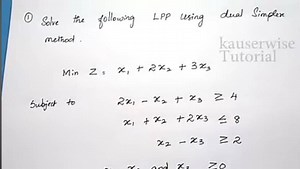 ① Solve the following LPP using dual Simplex
method.
kauserwise
Tutorial
Min Z = x₁ + 2x₂ + 3x₃
Subject to 2x₁ - x₂ + x₃ ≥ 4
x₁ + x₂ + 2x₃ ≤ 8
x₂ - x₃ ≥ 2
and ≥0